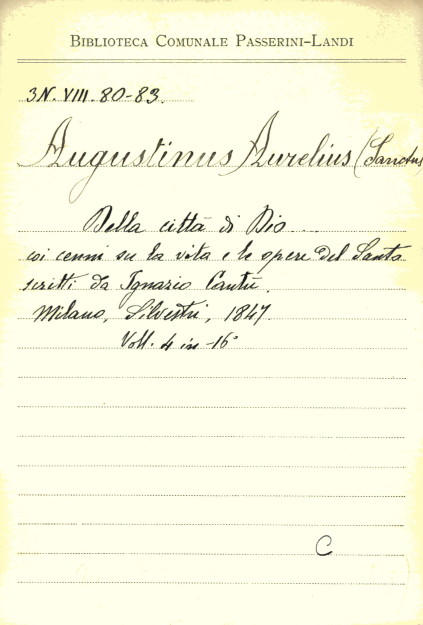 BIBLIOTECA COMUNALE PASSERINI-LANDI
3N. VIII. 80-83.
Augustinus Aurelius (Sanctus
Della città di Dio...
coi cenni su la vita e le opere del Santo
scritti da Ignazio Cantù.
Milano, Silvestri, 1847.
Voll. 4 in -16°
C